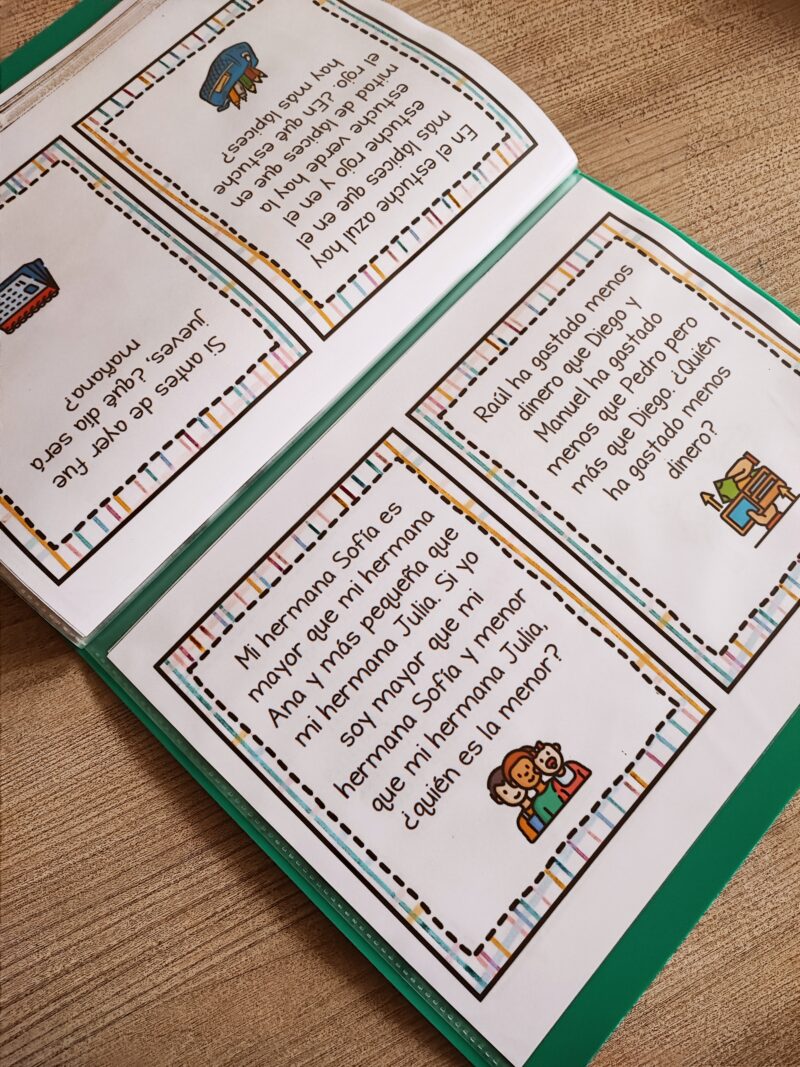 En el estuche azul hay
más lápices que en el
estuche rojo y en el
estuche verde hay la
mitad de lápices que en
el rojo. ¿En qué estuche
hay más lápices?
Si antes de ayer fue
jueves, ¿qué día será
mañana?
Raúl ha gastado menos
dinero que Diego y
Manuel ha gastado
menos que Pedro pero
más que Diego. ¿Quién
ha gastado menos
dinero?
Mi hermana Sofía es
mayor que mi hermana
Ana y más pequeña que
mi hermana Julia. Si yo
soy mayor que mi
hermana Sofía y menor
que mi hermana Julia,
¿quién es la menor?